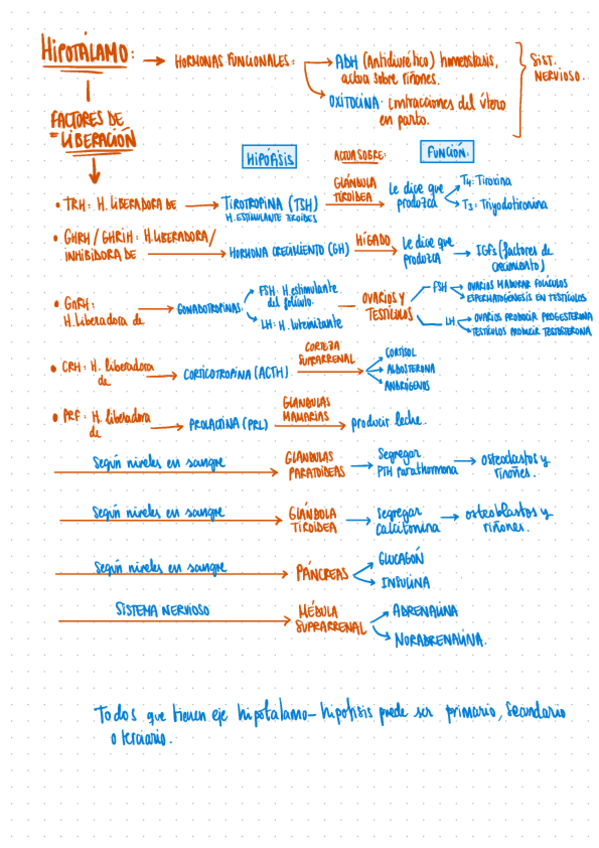 HIPOTÁLAMO: → HORMONAS FUNCIONALES: → ADH (Antidiurético) homeostasis,
actúa sobre riñones.
→ OXITOCINA: contracciones del útero
en parto.
SIST.
NERVIOSO.
FACTORES DE
= LIBERACIÓN
HIPÓFISIS ACTÚA SOBRE: FUNCIÓN:
• TRH: H. LIBERADORA DE → TIROTROPINA (TSH)
H. ESTIMULANTE TIROIDES
GLÁNDULA
TIROIDEA
le dice que
produzca
T4: Tiroxina
T3: Triyodotironina
• GHRH / GHRIH: H. LIBERADORA /
INHIBIDORA DE → HORMONA CRECIMIENTO (GH)
HÍGADO
le dice que
produzca
→ IGFs (factores de
crecimiento)
• GnRH:
H. liberadora de → GONADOTROPINAS
FSH: H. estimulante
del folículo.
LH: H. luteinizante
OVARIOS Y
TESTÍCULOS
FSH → OVARIOS MADURAR FOLÍCULOS
ESPERMATOGÉNESIS EN TESTÍCULOS
LH → OVARIOS PRODUCIR PROGESTERONA
TESTÍCULOS PRODUCIR TESTOSTERONA
• CRH: H. liberadora
de → CORTICOTROPINA (ACTH)
CORTEZA
SUPRARRENAL
CORTISOL
ALDOSTERONA
ANDRÓGENOS
• PRF: H. liberadora
de → PROLACTINA (PRL)
GLÁNDULAS
MAMARIAS
→ producir leche.
Según niveles en sangre → GLÁNDULAS
PARATOIDEAS
→ Segregar
PTH parathormona
→ osteoclastos y
riñones.
Según niveles en sangre → GLÁNDULA
TIROIDEA
→ segregar
calcitonina
→ osteoblastos y
riñones.
Según niveles en sangre → PÁNCREAS
GLUCAGÓN
INSULINA
SISTEMA NERVIOSO → MÉDULA
SUPRARRENAL
ADRENALINA
NORADRENALINA.
Todos que tienen eje hipotálamo-hipófisis puede ser primario, secundario
o terciario.